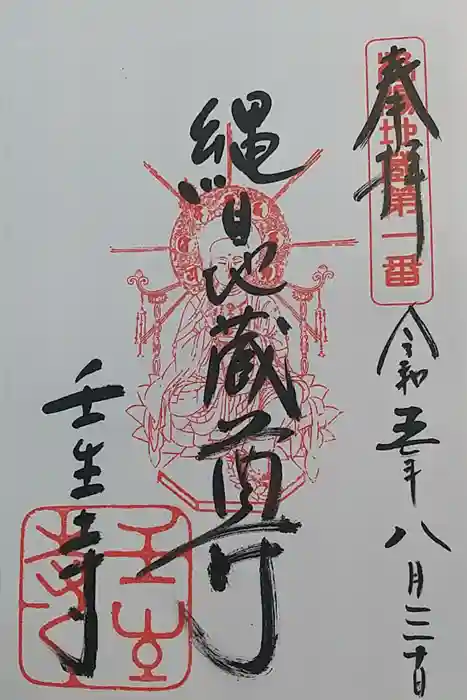 奉拝
洛陽地蔵第一番
令和五年八月三十日
縄目地蔵尊
壬生寺
壬生寺